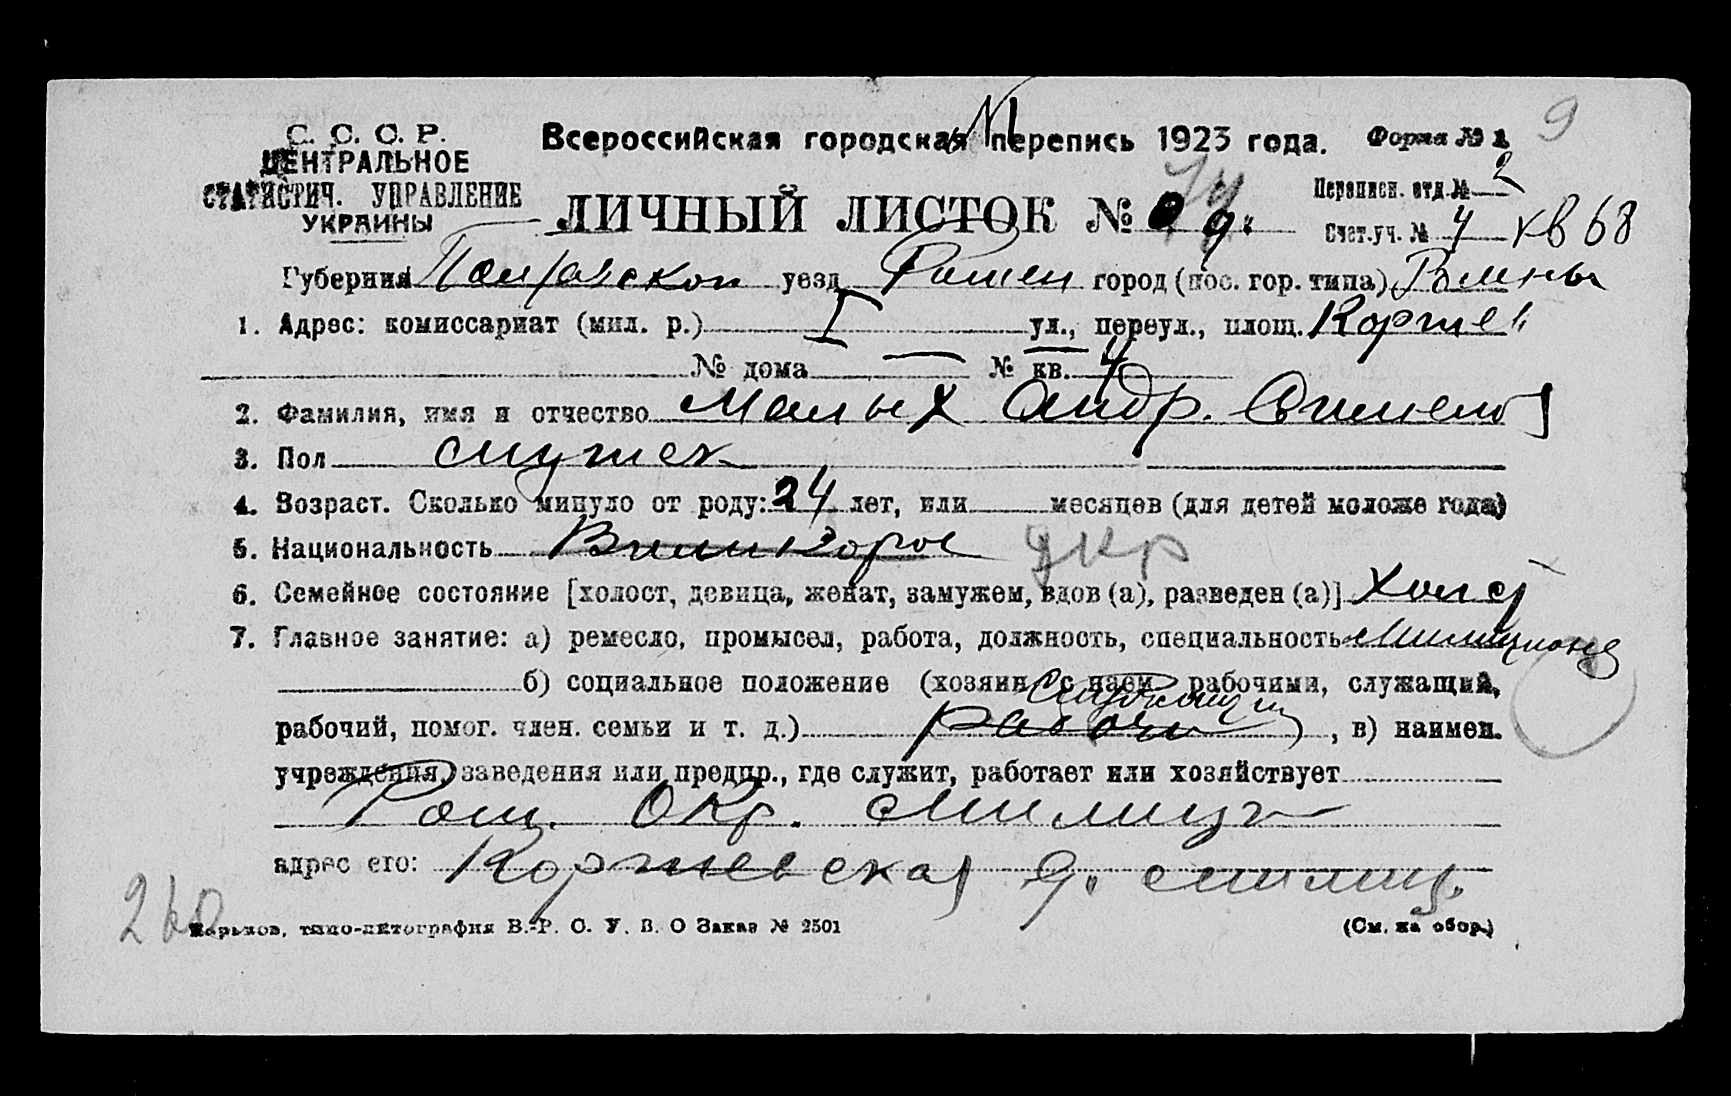 С. С. С. Р.
ЦЕНТРАЛЬНОЕ
СТАТИСТИЧ. УПРАВЛЕНИЕ
УКРАИНЫ
Всероссийская городская перепись 1923 года.
Форма № 1
9
ЛИЧНЫЙ ЛИСТОК № 9.
Переписн. отд. № 2
Счет. уч. № 4 кв 68
Губерния Полтавской уезд Ромен город (пос. гор. типа) Ромны
1. Адрес: комиссариат (мил. р.) I ул., переул., площ. Коржев
№ дома — № кв. 4
2. Фамилия, имя и отчество Малых Андр.
3. Пол мужск
4. Возраст. Сколько минуло от роду: 24 лет, или месяцев (для детей моложе года)
5. Национальность Великорос укр
6. Семейное состояние [холост, девица, женат, замужем, вдов (а), разведен (а)] Холост
7. Главное занятие: а) ремесло, промысел, работа, должность, специальность Милиционер
б) социальное положение (хозяин с наем. рабочими, служащий,
Служащий
рабочий, помог. член. семьи и т. д.) рабочий, в) наимен.
учреждения, заведения или предпр., где служит, работает или хозяйствует
Ром. Окр. Милиция
адрес его: Коржевская д. милиц.
260
Харьков, типо-литография В.-Р. С. У. В. О Заказ № 2501
(См. на обор.)